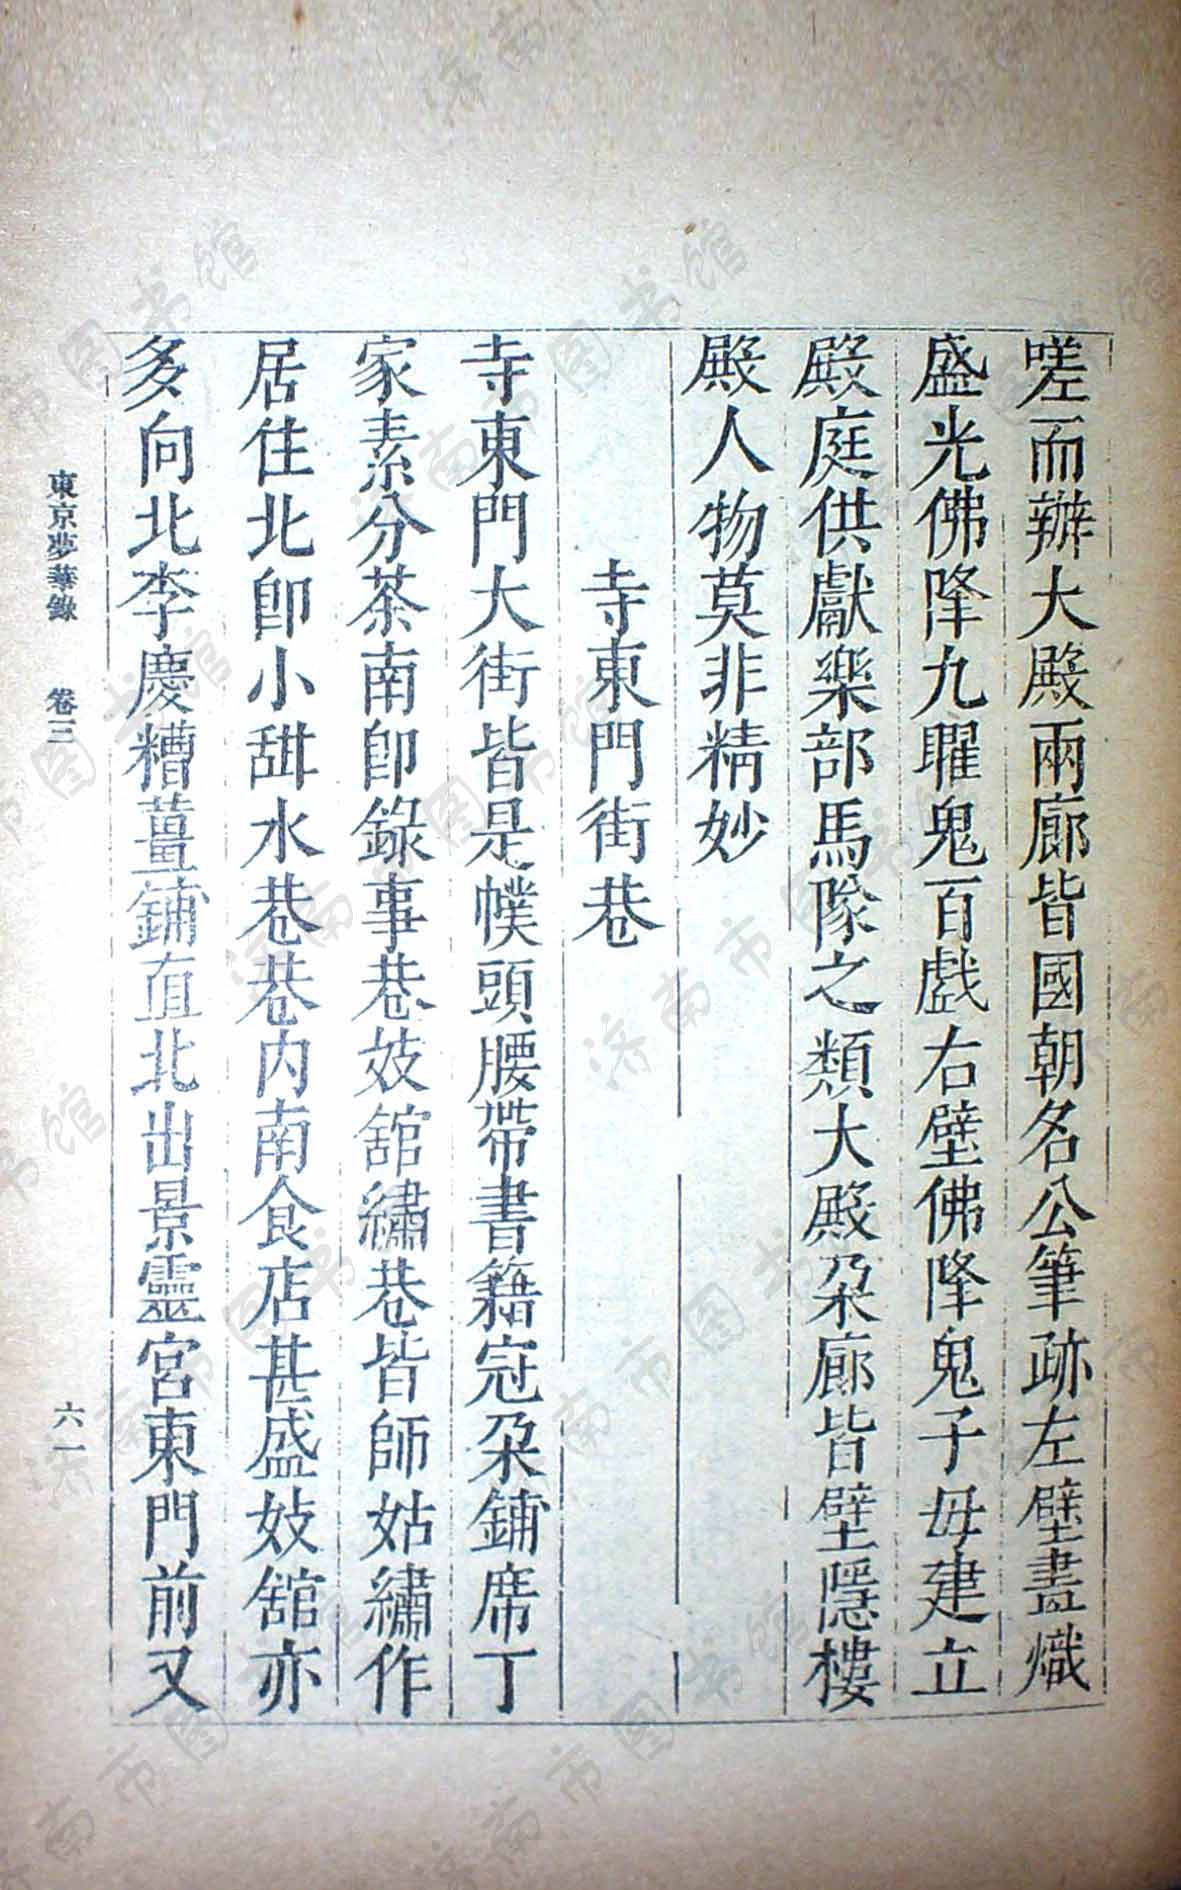 嗟而辦大殿兩廊皆國朝名公筆跡左壁畫熾
盛光佛降九曜鬼百戲右壁佛降鬼子母建立
殿庭供獻樂部馬隊之類大殿朶廊皆壁隱樓
殿人物莫非精妙
寺東門街巷
寺東門大街皆是幞頭腰帶書籍冠朶鋪席丁
家素分茶南卽錄事巷妓館繡巷皆師姑繡作
居住北卽小甜水巷巷內南食店甚盛妓館亦
多向北李慶糟薑鋪直北出景靈宮東門前又
東京夢華錄 卷三 六一
济南市图书馆